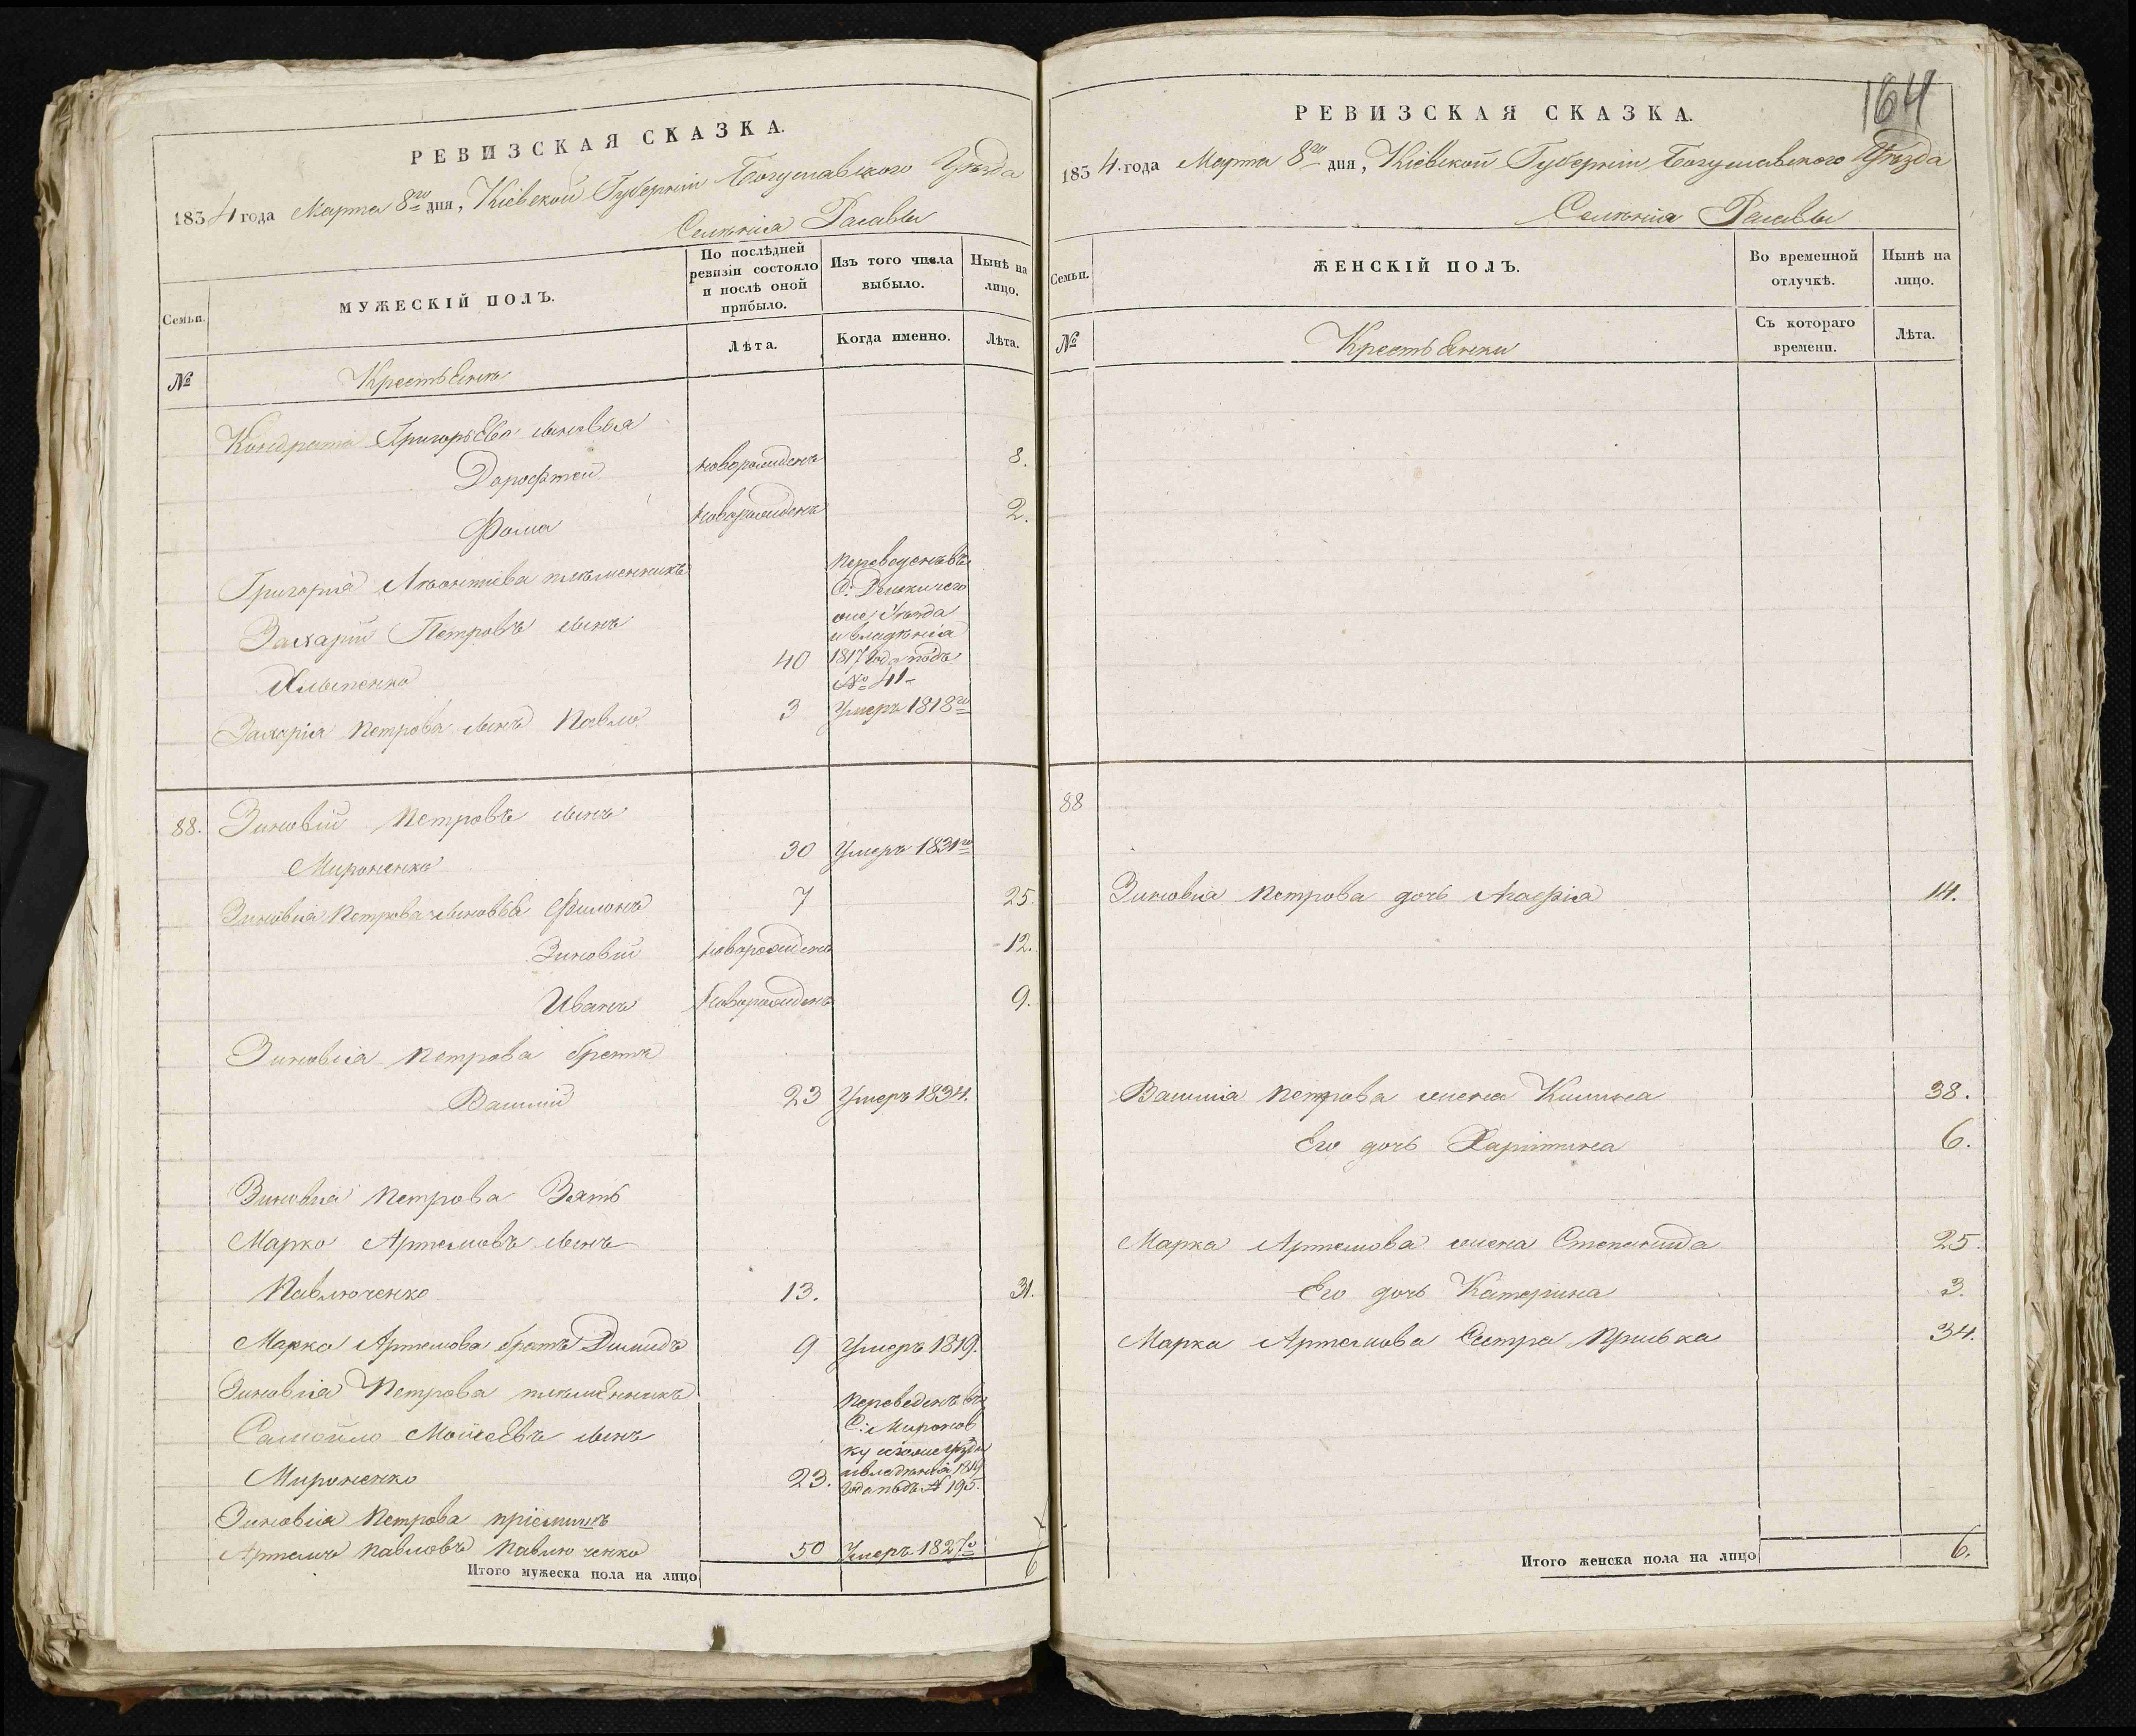 РЕВИЗСКАЯ СКАЗКА.
1834 года Марта 8го дня, Кіевской Губерніи Богуславского Уѣзда
Селѣнія Расавы
Семьи.
МУЖЕСКІЙ ПОЛЪ.
По послѣдней ревизіи состояло и послѣ оной прибыло.
Изъ того числа выбыло.
Нынѣ на лицо.
№
Крестьянѣ
Лѣта.
Когда именно.
Лѣта.
Кондрата Григорьева сыновья
Дорофтей новорожденъ 8.
Фома новорожденъ 2.
Григорія Леонтіева племенникъ
Захарій Петровъ сынъ
40
переведенъ въ
С:
оже Уѣзда
и владѣнія
1817 года подъ
№ 41
Захарія Петрова сынъ Павло 3 Умеръ 1818го
88. Зиновій Петровъ сынъ
Мироненко 30 Умеръ 1831го
Зиновія Петрова сыновья Филонъ 7 25.
Зиновій новорожденъ 12.
Иванъ новорожденъ 9.
Зиновія Петрова братъ
Василій 23 Умеръ 1834.
Зиновія Петрова Зять
Марко Артемовъ сынъ
Павлюченко 13. 31.
Марка Артемова братъ Димидъ 9 Умеръ 1819.
Зиновія Петрова племенникъ
Самойло Мойсеевъ сынъ
Мироненко 23.
переведенъ въ
С: Миронов
ку Уѣзда
и владѣнія
года подъ № 195.
Зиновія Петрова пріемышъ
Артемъ Павловъ Павлюченко 50 Умеръ 1827го
Итого мужеска пола на лицо 6
164
РЕВИЗСКАЯ СКАЗКА.
1834. года Марта 8го дня, Кіевской Губерніи, Богуславского Уѣзда
Селѣнія Расавы
Семьи.
ЖЕНСКІЙ ПОЛЪ.
Во временной отлучкѣ.
Нынѣ на лицо.
№
Крестьянки
Съ котораго времени.
Лѣта.
88
Зиновія Петрова дочь Агафія 14.
Василія Петрова жена Килина 38.
Его дочь Харитина 6.
Марка Артемова жена Степанида 25
Его дочь Катерина 3.
Марка Артемова Сестра Приська 34.
Итого женска пола на лицо 6.